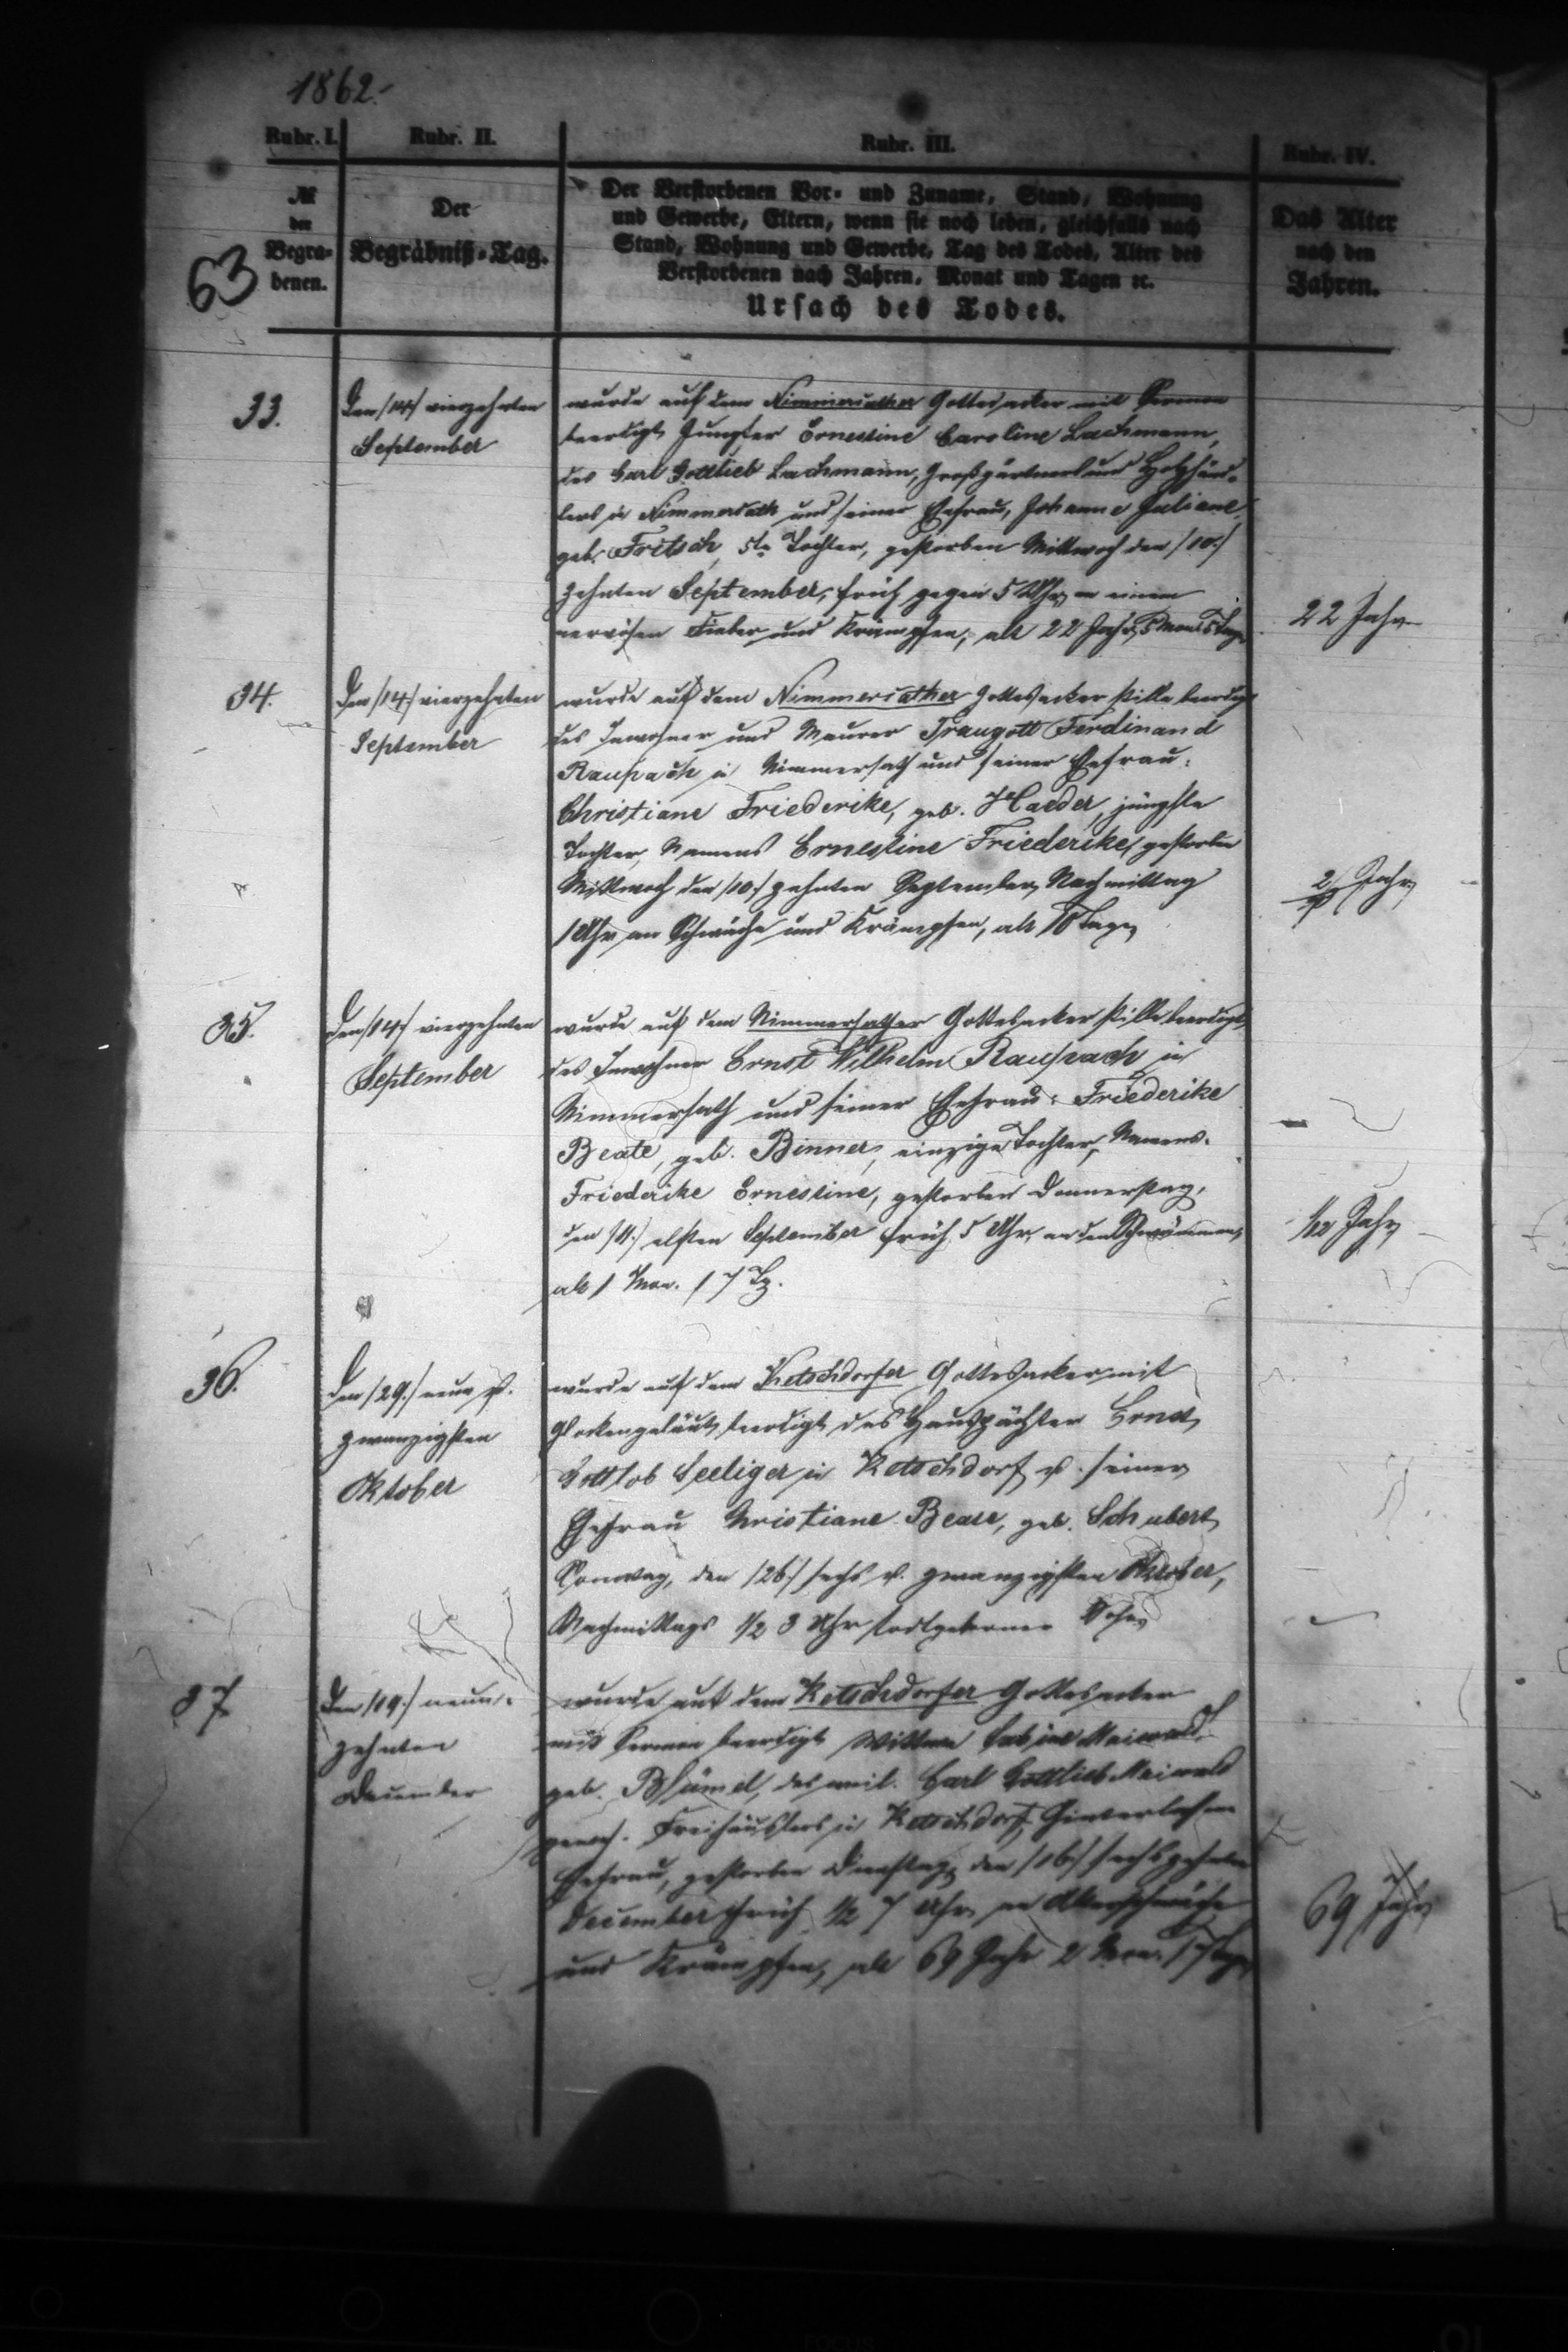 1862.
Rubr. I.
Rubr. II.
Rubr. III.
Rubr. IV.
№
der
Begra-
benen.
63
Der
Begräbniß-Tag.
Der Verstorbenen Vor- und Zuname, Stand, Wohnung
und Gewerbe, Eltern, wenn sie noch leben, gleichfalls nach
Stand, Wohnung und Gewerbe, Tag des Todes, Alter des
Verstorbenen nach Jahren, Monat und Tagen ꝛc.
Ursach des Todes.
Das Alter
nach den
Jahren.
33.
Den /14./ vierzehnten
September
wurde auf dem Nimmersather Gottesacker mit Sermon
beerdigt Jungfer Ernestine Caroline Lachmann,
des Carl Gottlieb Lachmann, Großgärtners und Holzhänd-
lers in Nimmersath und seiner Ehefrau, Johanne Juliane,
geb. Fritsch, 5te Tochter, gestorben Mittwoch den /10./
zehnten September, früh gegen 5 Uhr, an einem
nervösen Fieber und Krämpfen, alt 22 Jahr, 5 Mon. 5 Tage
22 Jahr
34.
Den /14./ vierzehnten
September
wurde auf dem Nimmersather Gottesacker stille beerdigt
des Inwohner und Maurer Traugott Ferdinand
Raupach in Nimmersath und seiner Ehefrau:
Christiane Friederike, geb. Harder, jüngste
Tochter, Namens Ernestine Friederike, gestorben
Mittwoch den /10./ zehnten September, Nachmittag
1 Uhr an Schwäche und Krämpfen, alt 10 Tage,
Jahr
35.
Den /14./ vierzehnten
September
wurde auf dem Nimmersather Gottesacker stille beerdigt,
des Inwohner Ernst Wilhelm Raupach in
Nimmersath und seiner Ehefrau: Friederike
Beate, geb. Binner, einzige Tochter, Namens.
Friederike Ernestine, gestorben Donnerstag,
den /11./ elften September früh 5 Uhr, an den Schwämmen,
alt 1 Mon. 17 Tg.
1/12 Jahr
36.
Den /29./ neun u.
zwanzigsten
Oktober
wurde auf dem Ketschdorfer Gottesacker mit
Glockengeläut beerdigt des Hauspächter Ernst
Gottlob Seeliger in Ketschdorf u. seiner
Ehefrau Christiane Beate, geb. Schubert,
Sonntag, den /26./ sechs u. zwanzigsten Oktober,
Nachmittags 1/2 3 Uhr todtgeborner Sohn
37
Den /19./ neun-
zehnten
December
wurde auf dem Ketschdorfer Gottesacker
mit Sermon beerdigt Wittwe Maiwald,
geb. Blümel, des weil. Carl Gottlieb Maiwald
gewes. Freihäuslers in Ketschdorf hinterlaßne
Ehefrau, gestorben Dienstag, den /16./ sechszehnten
December früh 1/2 7 Uhr, an Altersschwäche
und Krämpfen, alt 69 Jahr 2 Mon. 17 Tage
69 Jahr